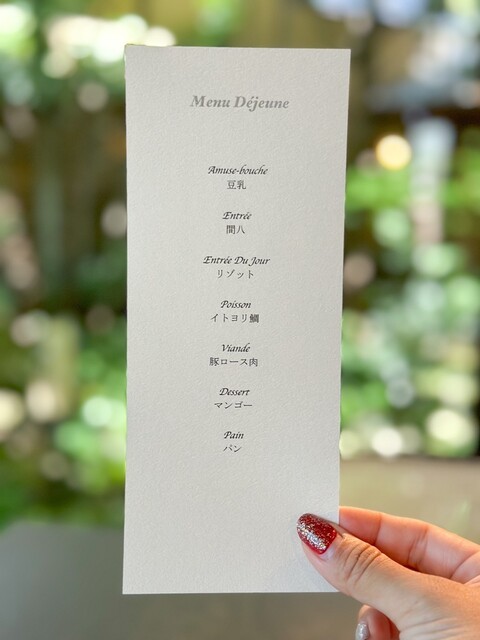 Menu Déjeune
Amuse-bouche
豆乳
Entrée
間八
Entrée Du Jour
リゾット
Poisson
イトヨリ鯛
Viande
豚ロース肉
Dessert
マンゴー
Pain
パン